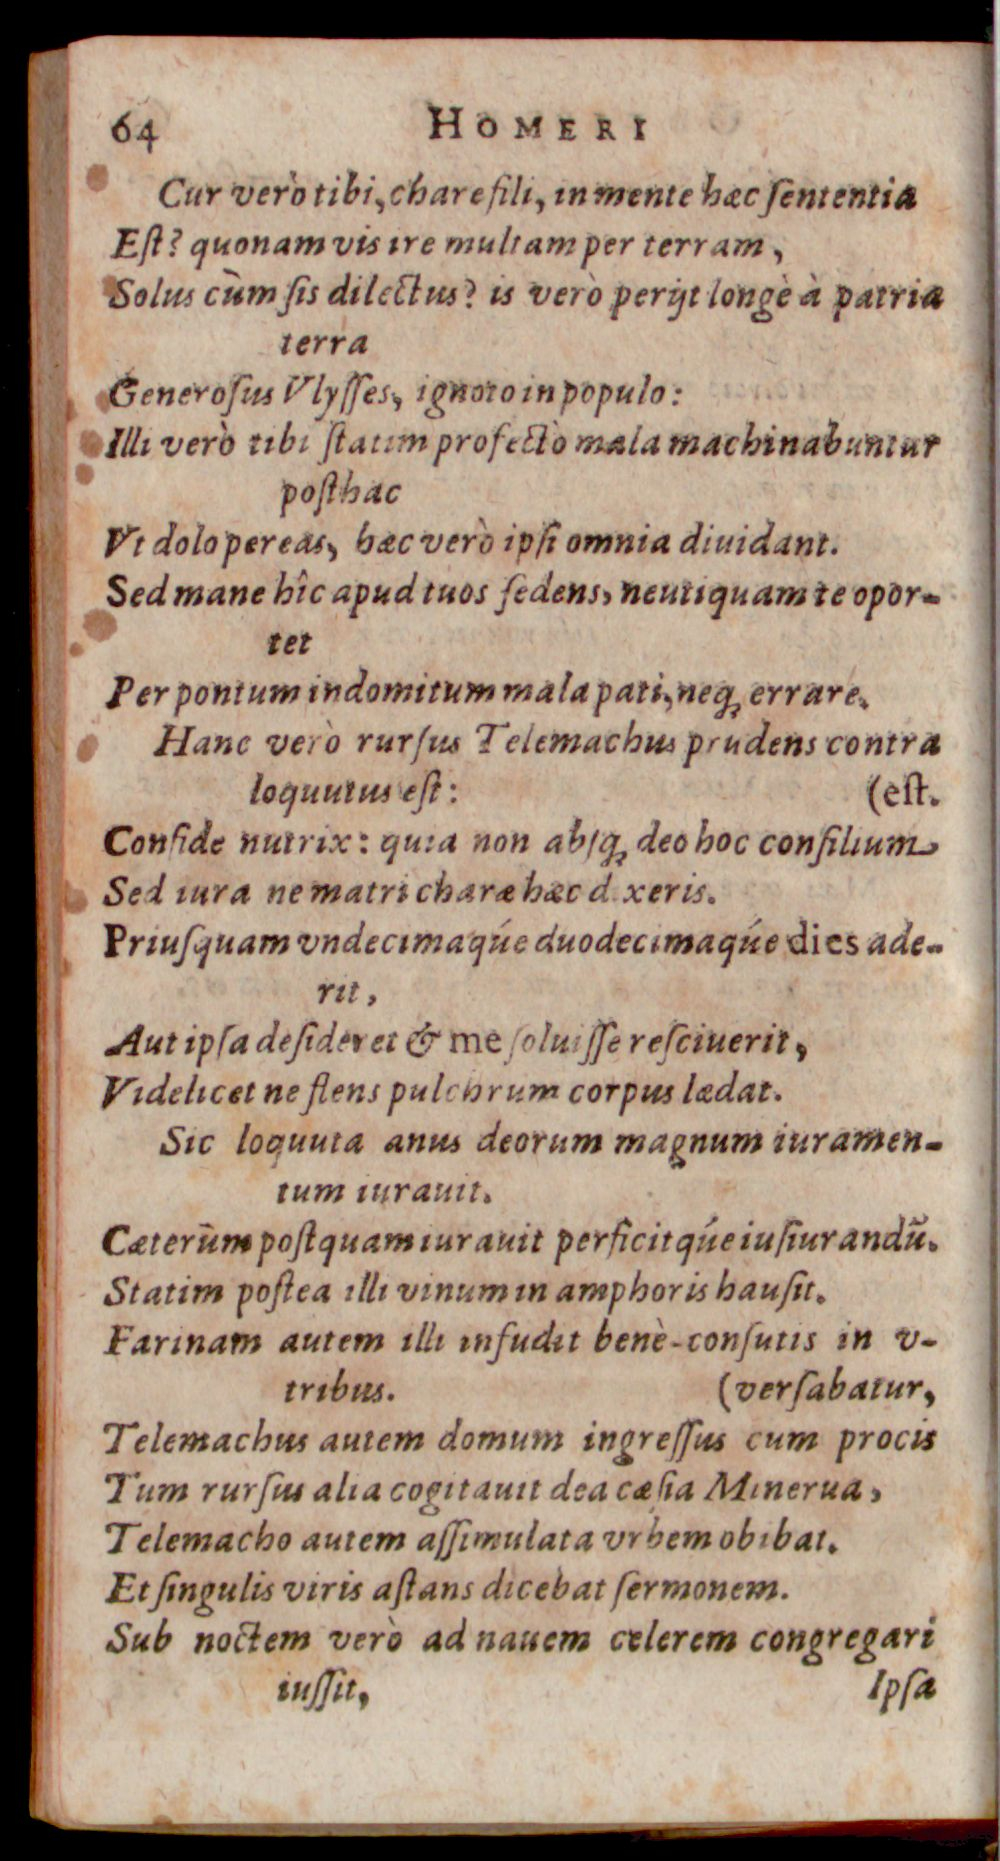 64 HOMERI
Cur verò tibi, chare fili, in mente hæc ſententia
Eſt? quonam vis ire multam per terram,
Solus cùm ſis dilectus? is verò perijt longè à patria
terra
Generoſus Vlyſſes, ignoto in populo:
Illi verò tibi ſtatim profectò mala machinabuntur
poſthac
Vt dolo pereas, hæc verò ipſi omnia diuidant.
Sed mane hîc apud tuos ſedens, neutiquam te opor-
tet
Per pontum indomitum mala pati, neq; errare.
Hanc verò rurſus Telemachus prudens contra
loquutus eſt: (eſt.
Confide nutrix: quia non abſq; deo hoc conſilium
Sed iura ne matri charæ hæc dixeris.
Priuſquam vndecimaqúe duodecimaqúe dies ade-
rit,
Aut ipſa deſideret & me ſoluiſſe reſciuerit,
Videlicet ne flens pulchrum corpus lædat.
Sic loquuta anus deorum magnum iuramen-
tum iurauit.
Cæterùm poſtquam iurauit perficitqúe iuſiurandũ.
Statim poſtea illi vinum in amphoris hauſit.
Farinam autem illi infudit benè-conſutis in v-
tribus. (verſabatur,
Telemachus autem domum ingreſſus cum procis
Tum rurſus alia cogitauit dea cæſia Minerua,
Telemacho autem aſſimulata vrbem obibat.
Et ſingulis viris aſtans dicebat ſermonem.
Sub noctem verò ad nauem celerem congregari
iuſſit, Ipſa